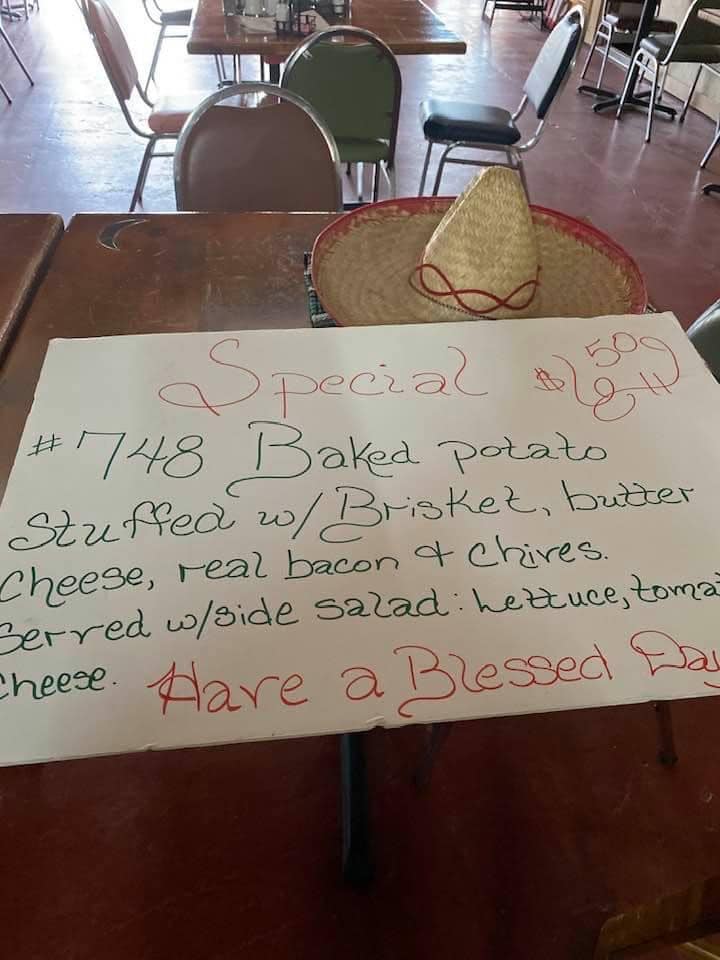 Special
#748 Baked potato
Stuffed w/ Brisket, butter
Cheese, real bacon & Chives.
Served w/side salad: Lettuce, toma
Cheese. Have a Blessed Day